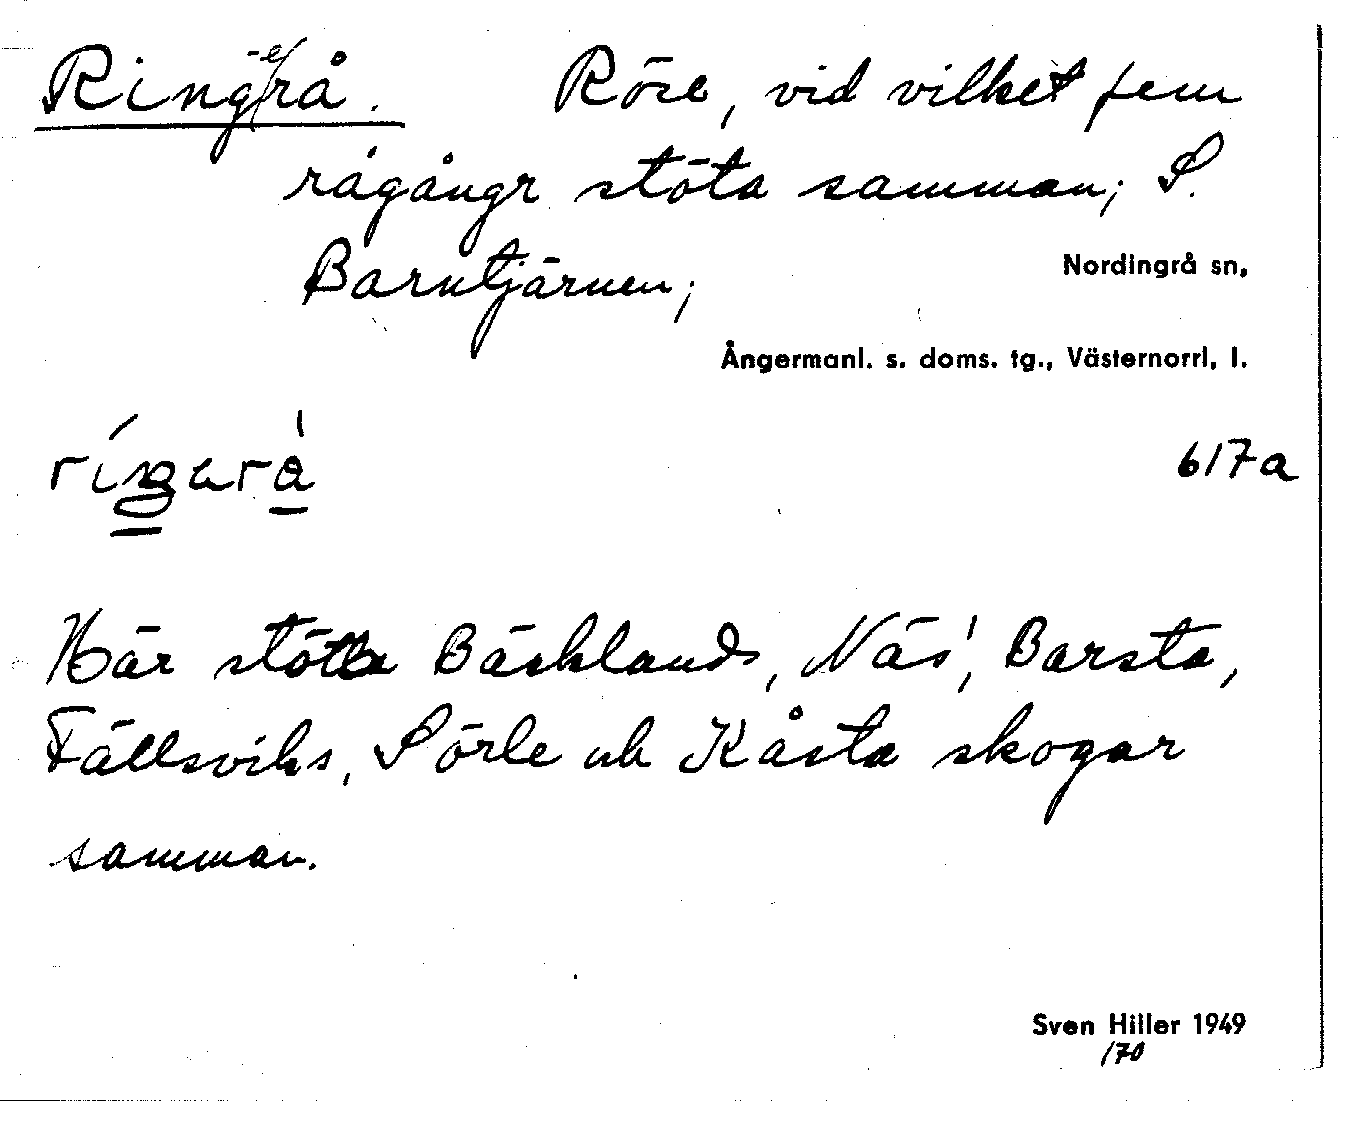 Ring-e/rå. Röse, vid vilket fem
rågångr stöta samman; S.
Barntjärnen;
Nordingrå sn,
Ångermanl. s. doms. tg., Västernorrl, l.
617a
Här stöta Bäcklands, Näs', Barsta,
Fällsviks, Sörle och Kåsta skogar
samman.
Sven Hiller 1949
170